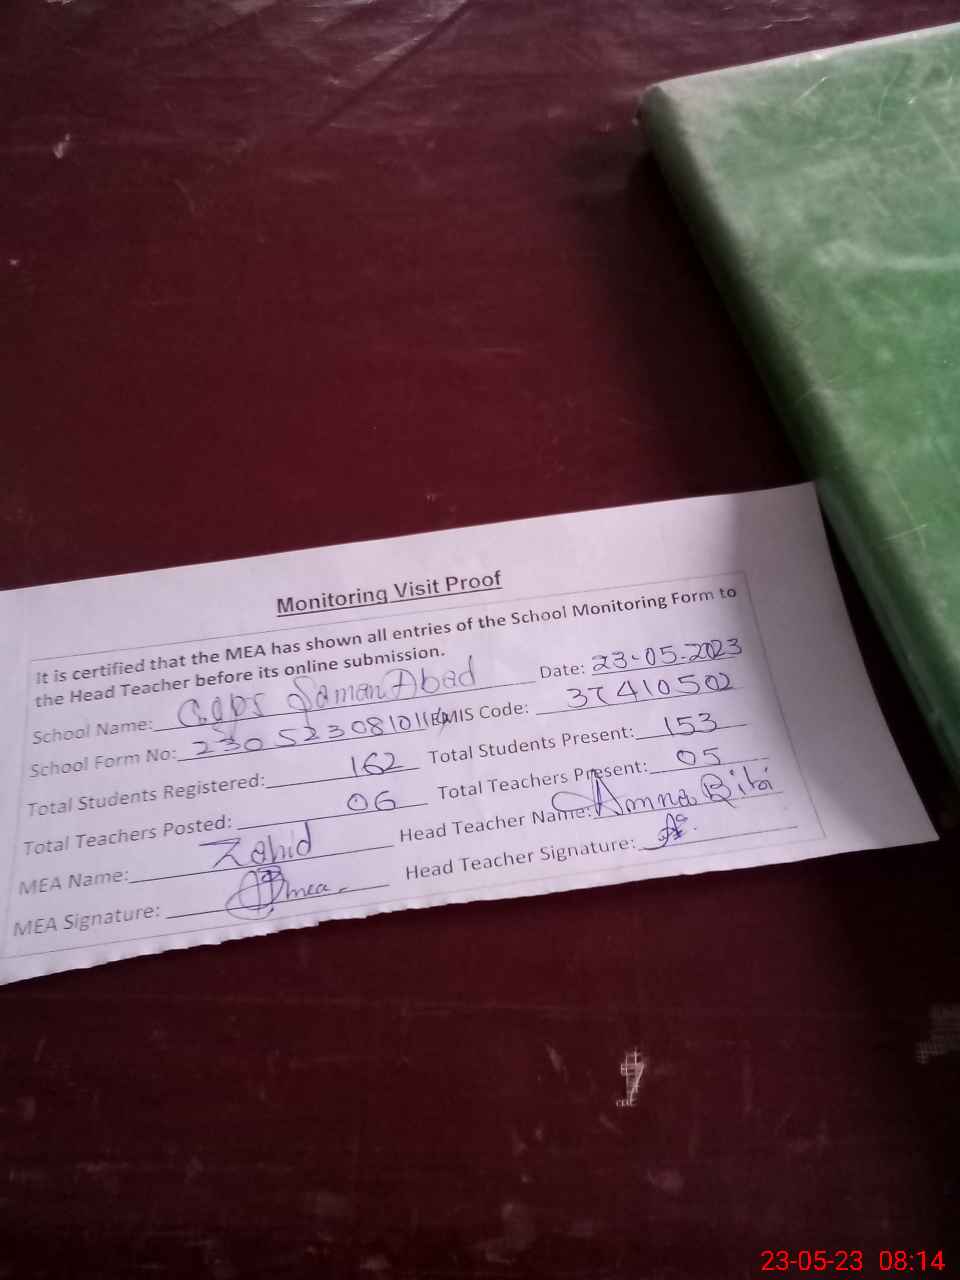 Monitoring Visit Proof
It is certified that the MEA has shown all entries of the School Monitoring Form to
the Head Teacher before its online submission.
School Name: GGPS Saman Abad Date: 23-05-2023
School Form No: 2305230810116 EMIS Code: 37410502
Total Students Registered: 162 Total Students Present: 153
Total Teachers Posted: 06 Total Teachers Present: 05
MEA Name: Zahid Head Teacher Name: Amna Bibi
MEA Signature: mea Head Teacher Signature:
23-05-23 08:14